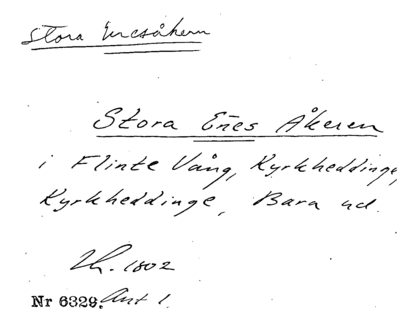 Stora Enesåkern
Stora Enes Åkeren
i Flinte Vång, Kyrkheddinge,
Kyrkheddinge, Bara hd.
Lh. 1802
Nr 6329. Akt 1.